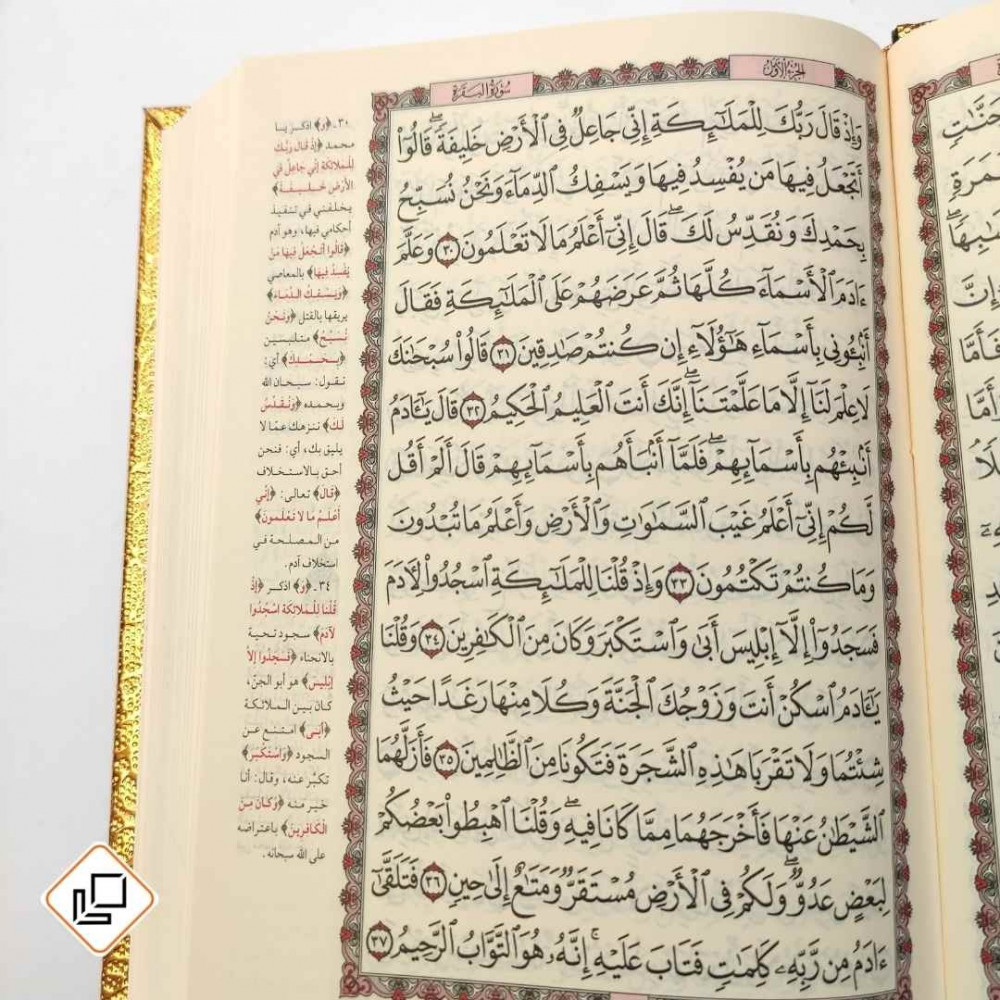 الجزء الأول
سورة البقرة
وَإِذْ قَالَ رَبُّكَ لِلْمَلَـٰٓئِكَةِ إِنِّى جَاعِلٌ فِى ٱلْأَرْضِ خَلِيفَةً ۖ قَالُوٓا۟
أَتَجْعَلُ فِيهَا مَن يُفْسِدُ فِيهَا وَيَسْفِكُ ٱلدِّمَآءَ وَنَحْنُ نُسَبِّحُ
بِحَمْدِكَ وَنُقَدِّسُ لَكَ ۖ قَالَ إِنِّىٓ أَعْلَمُ مَا لَا تَعْلَمُونَ ٣٠ وَعَلَّمَ
ءَادَمَ ٱلْأَسْمَآءَ كُلَّهَا ثُمَّ عَرَضَهُمْ عَلَى ٱلْمَلَـٰٓئِكَةِ فَقَالَ
أَنۢبِـُٔونِى بِأَسْمَآءِ هَـٰٓؤُلَآءِ إِن كُنتُمْ صَـٰدِقِينَ ٣١ قَالُوا۟ سُبْحَـٰنَكَ
لَا عِلْمَ لَنَآ إِلَّا مَا عَلَّمْتَنَآ ۖ إِنَّكَ أَنتَ ٱلْعَلِيمُ ٱلْحَكِيمُ ٣٢ قَالَ يَـٰٓـَٔادَمُ
أَنۢبِئْهُم بِأَسْمَآئِهِمْ ۖ فَلَمَّآ أَنۢبَأَهُم بِأَسْمَآئِهِمْ قَالَ أَلَمْ أَقُل
لَّكُمْ إِنِّىٓ أَعْلَمُ غَيْبَ ٱلسَّمَـٰوَٰتِ وَٱلْأَرْضِ وَأَعْلَمُ مَا تُبْدُونَ
وَمَا كُنتُمْ تَكْتُمُونَ ٣٣ وَإِذْ قُلْنَا لِلْمَلَـٰٓئِكَةِ ٱسْجُدُوا۟ لِـَٔادَمَ
فَسَجَدُوٓا۟ إِلَّآ إِبْلِيسَ أَبَىٰ وَٱسْتَكْبَرَ وَكَانَ مِنَ ٱلْكَـٰفِرِينَ ٣٤ وَقُلْنَا
يَـٰٓـَٔادَمُ ٱسْكُنْ أَنتَ وَزَوْجُكَ ٱلْجَنَّةَ وَكُلَا مِنْهَا رَغَدًا حَيْثُ
شِئْتُمَا وَلَا تَقْرَبَا هَـٰذِهِ ٱلشَّجَرَةَ فَتَكُونَا مِنَ ٱلظَّـٰلِمِينَ ٣٥ فَأَزَلَّهُمَا
ٱلشَّيْطَـٰنُ عَنْهَا فَأَخْرَجَهُمَا مِمَّا كَانَا فِيهِ ۖ وَقُلْنَا ٱهْبِطُوا۟ بَعْضُكُمْ
لِبَعْضٍ عَدُوٌّ ۖ وَلَكُمْ فِى ٱلْأَرْضِ مُسْتَقَرٌّ وَمَتَـٰعٌ إِلَىٰ حِينٍ ٣٦ فَتَلَقَّىٰٓ
ءَادَمُ مِن رَّبِّهِۦ كَلِمَـٰتٍ فَتَابَ عَلَيْهِ ۚ إِنَّهُۥ هُوَ ٱلتَّوَّابُ ٱلرَّحِيمُ ٣٧
٣٠ـ ﴿وَ﴾ اذكر يا
محمد ﴿إِذْ قَالَ رَبُّكَ
لِلْمَلَائِكَةِ إِنِّي جَاعِلٌ فِي
الْأَرْضِ خَلِيفَةً﴾
يخلفني في تنفيذ
أحكامي فيها، وهو آدم
﴿قَالُوا أَتَجْعَلُ فِيهَا مَن
يُفْسِدُ فِيهَا﴾ بالمعاصي
﴿وَيَسْفِكُ الدِّمَاءَ﴾
يريقها بالقتل ﴿وَنَحْنُ
نُسَبِّحُ﴾ متلبسين
﴿بِحَمْدِكَ﴾ أي:
نقول: سبحان الله
وبحمده ﴿وَنُقَدِّسُ
لَكَ﴾ ننزهك عمّا لا
يليق بك، أي: فنحن
أحق بالاستخلاف
﴿قَالَ﴾ تعالى: ﴿إِنِّي
أَعْلَمُ مَا لَا تَعْلَمُونَ﴾
من المصلحة في
استخلاف آدم.
٣٤ـ ﴿وَ﴾ اذكر ﴿إِذْ
قُلْنَا لِلْمَلَائِكَةِ اسْجُدُوا
لِآدَمَ﴾ سجود تحية
بالانحناء ﴿فَسَجَدُوا إِلَّا
إِبْلِيسَ﴾ هو أبو الجنّ،
كان بين الملائكة
﴿أَبَى﴾ امتنع عن
السجود ﴿وَاسْتَكْبَرَ﴾
تكبّر عنه، وقال: أنا
خير منه ﴿وَكَانَ مِنَ
الْكَافِرِينَ﴾ باعتراضه
على الله سبحانه.